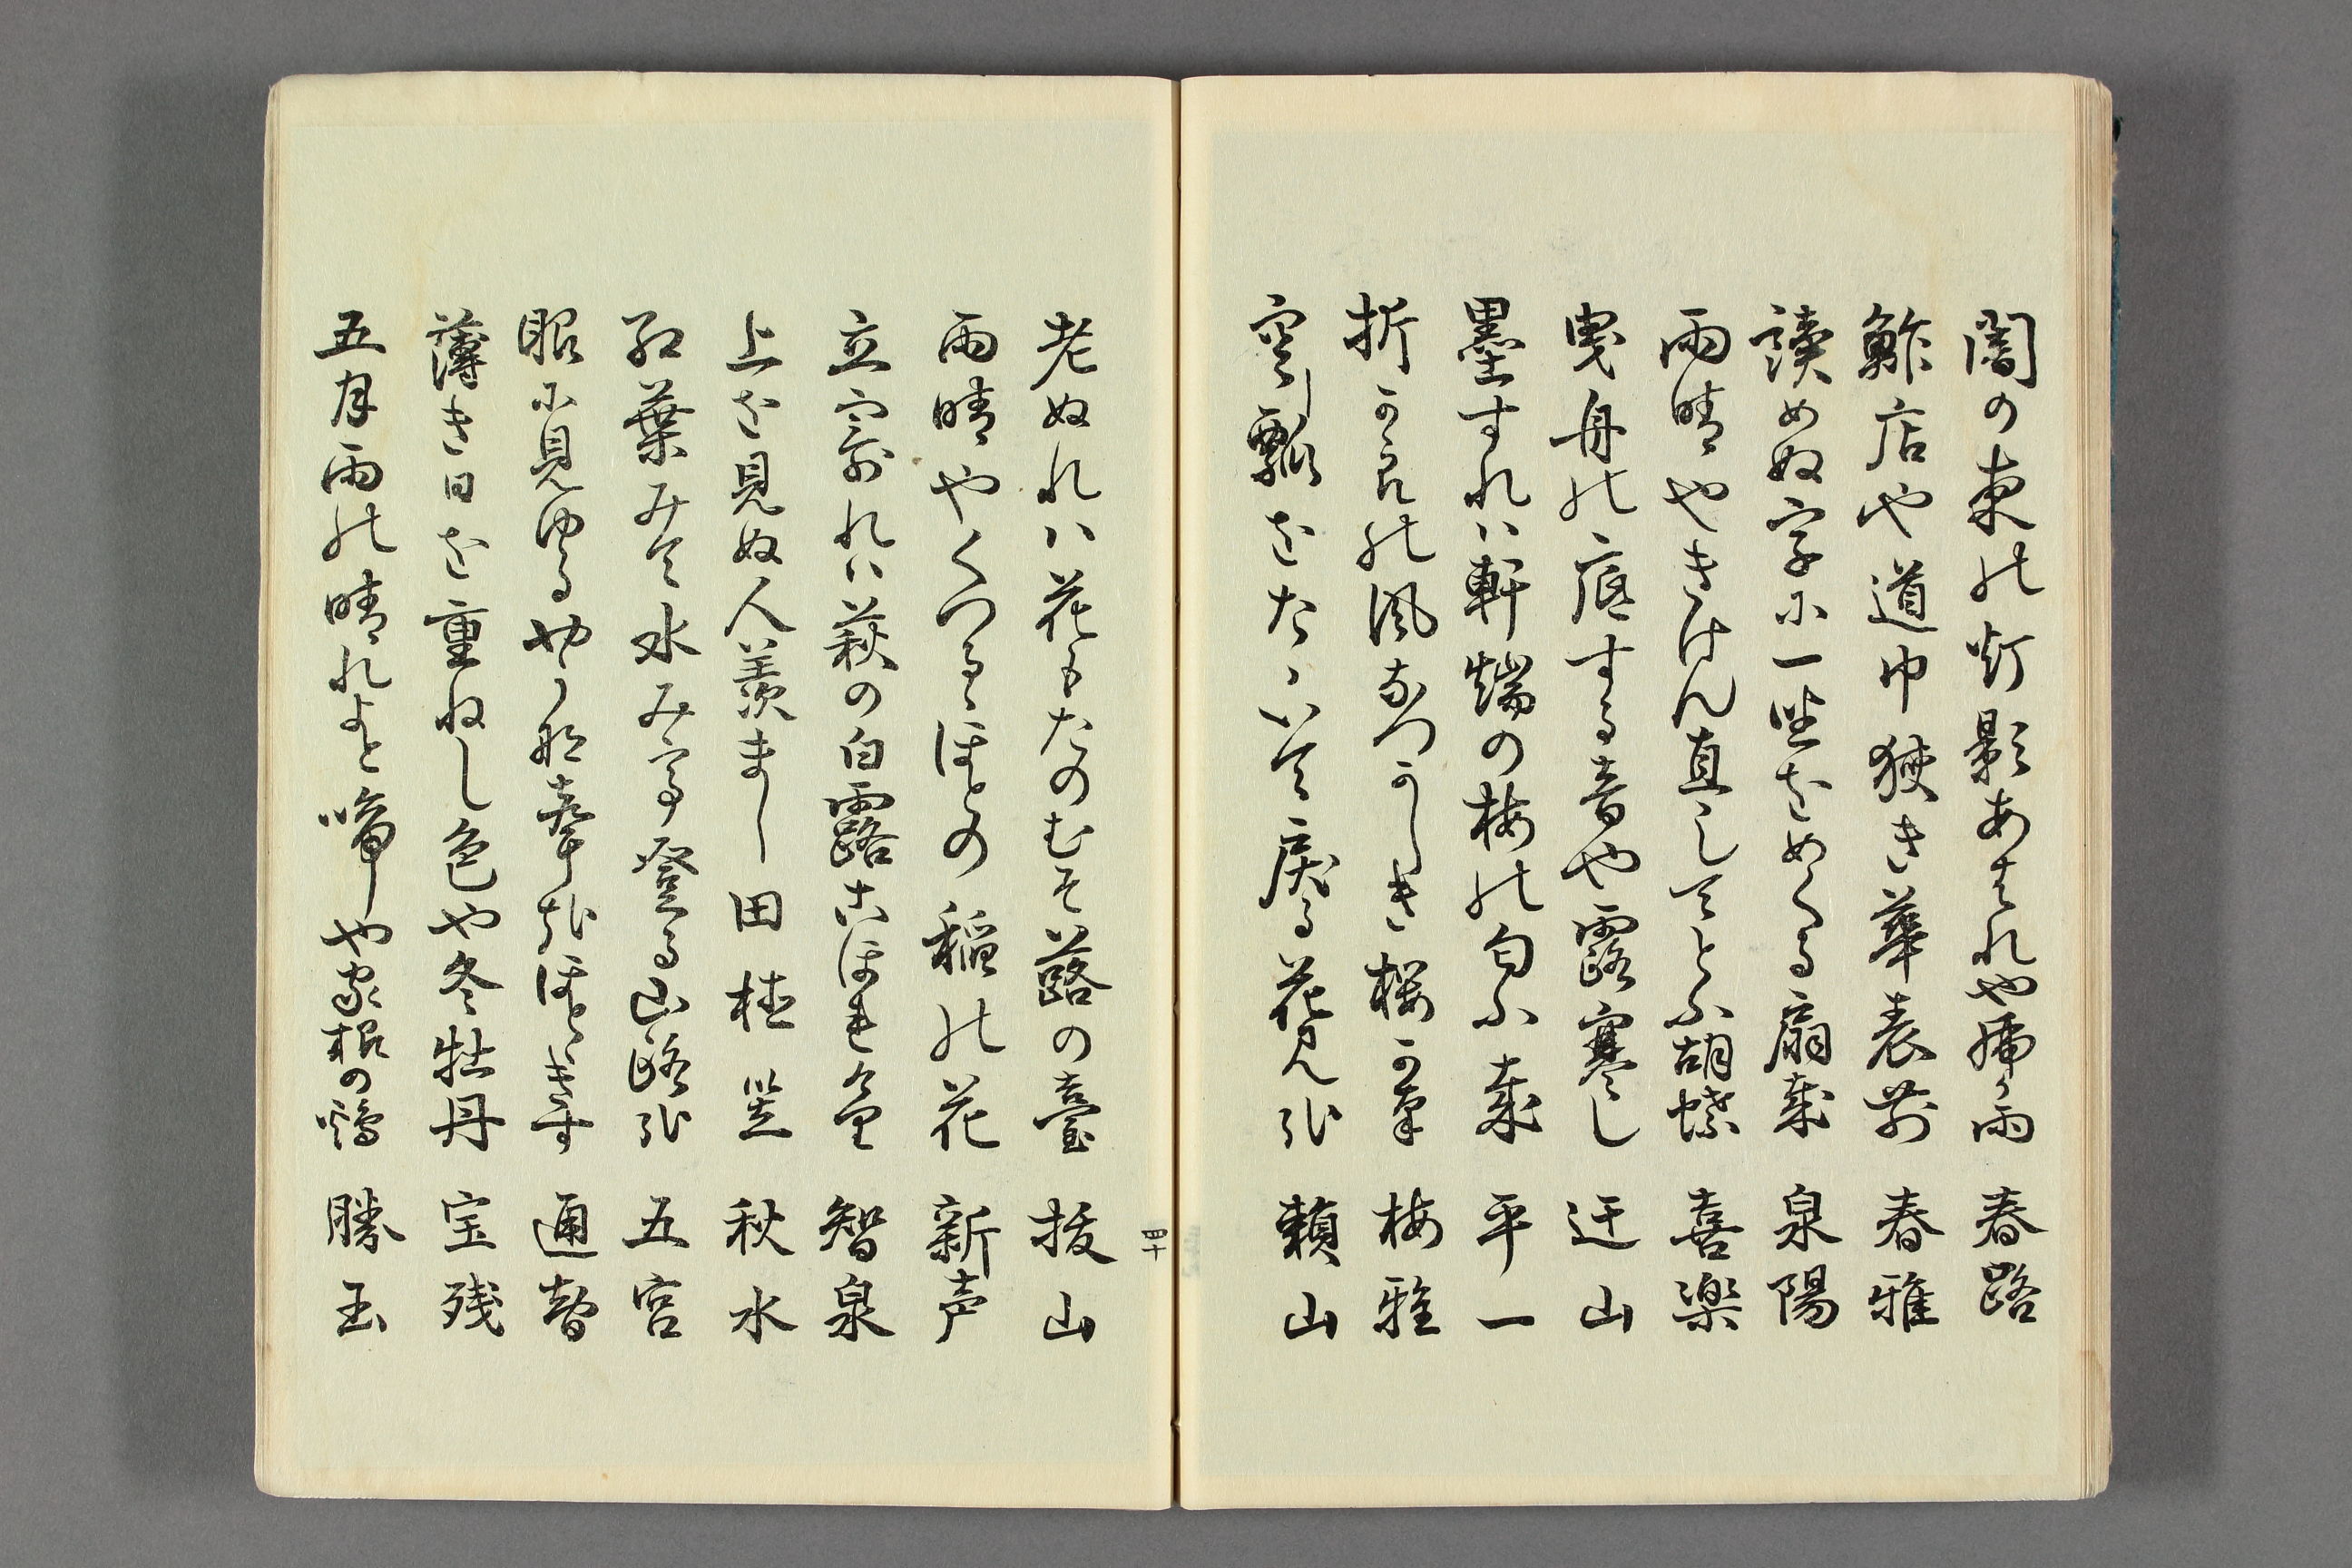 闇の東の灯影あはれや虎か雨　春路
鮓店や道巾狭き華表前　春雅
読めぬ字に一座をめくる扇哉　泉陽
雨晴やきけん直してとふ胡蝶　喜楽
曳舟の底する音や露寒し　迂山
墨すれハ軒端の梅の匂ふ哉　平一
折からの風なつかしき桜かな　梅雅
空し瓢をたゝいて戻る花見かな　頼山
老ぬれハ花もたのむそ蕗の薹　抜山
雨晴やくつるゝほとの稲の花　新声
立寄れハ萩の白露こほれ　智泉
上を見ぬ人羨まし田植笠　秋水
紅葉みて水みて登る山路かな　五宮
眼に見ゆるやうな声なりほとゝきす　通哲
薄き日を重ねし色や冬牡丹　宝残
五月雨の晴れよと啼や家根の鶏　勝玉
四十